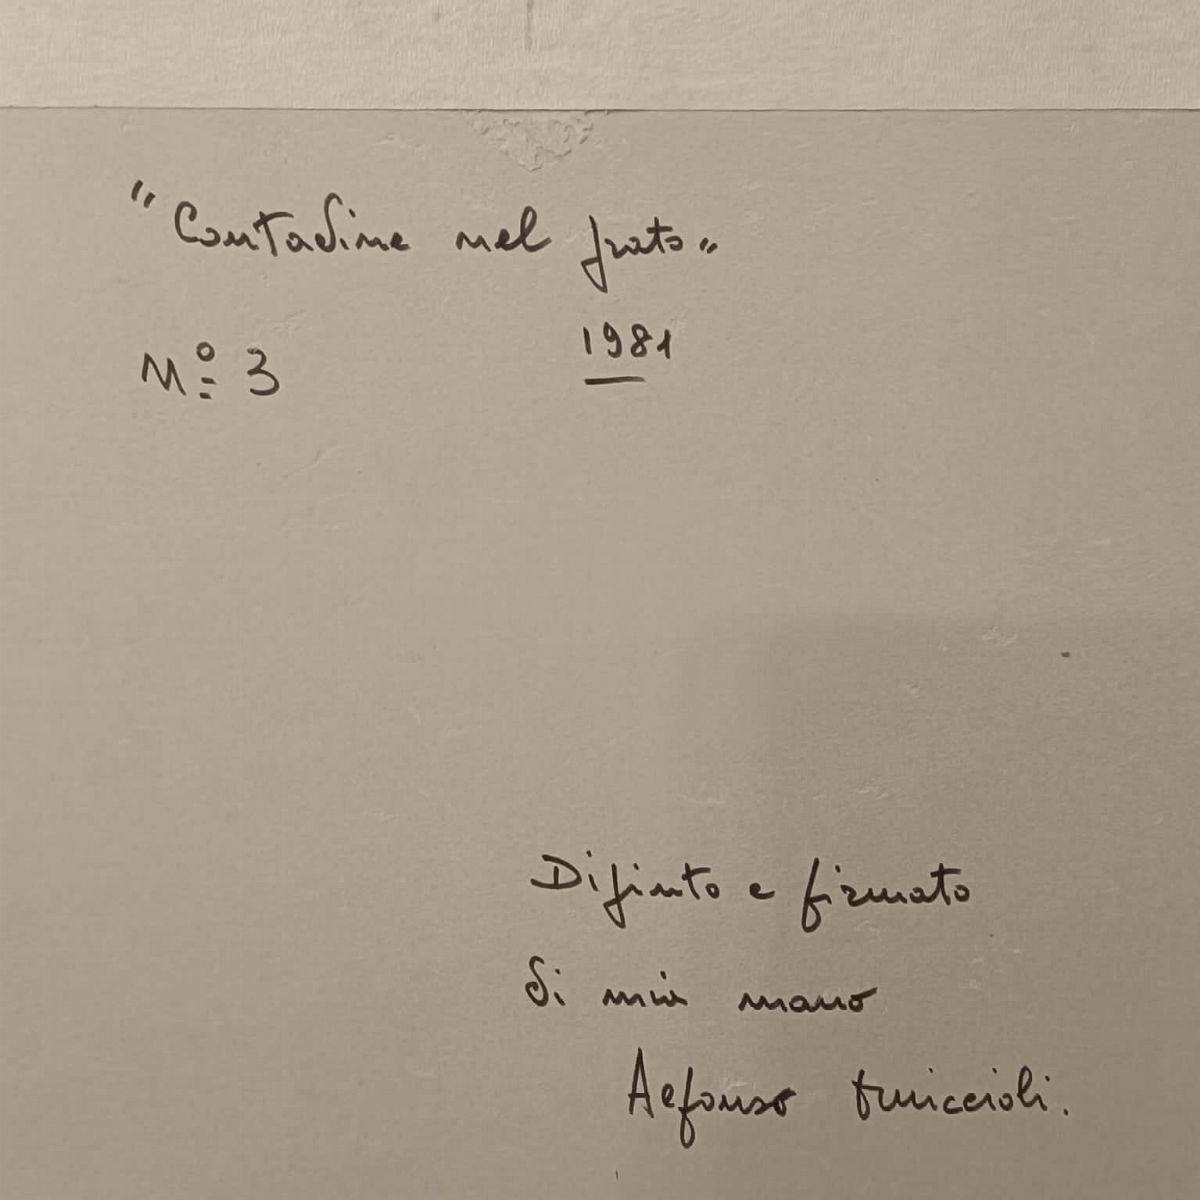 "Contadine nel prato"
N° 3 1981
Dipinto e firmato
di mia mano
Alfonso